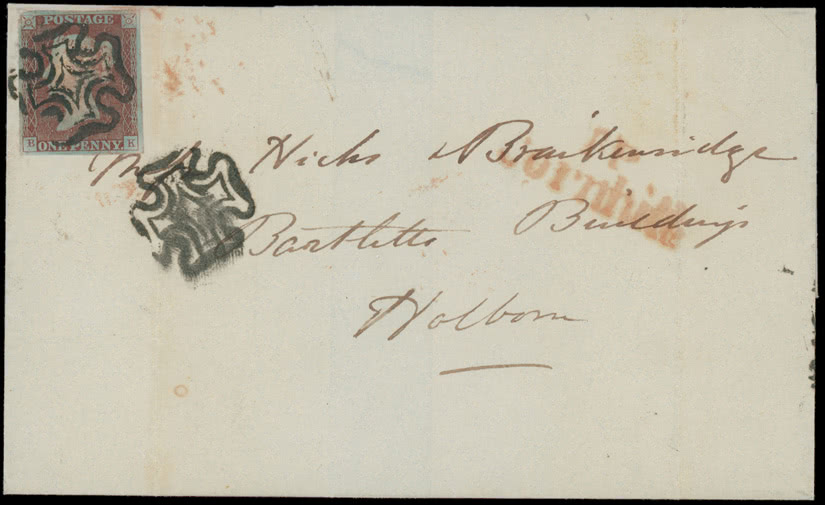 POSTAGE
B ONE PENNY K
Messrs Hicks & Braikenridge
Cornhill
Bartletts Buildings
Holborn